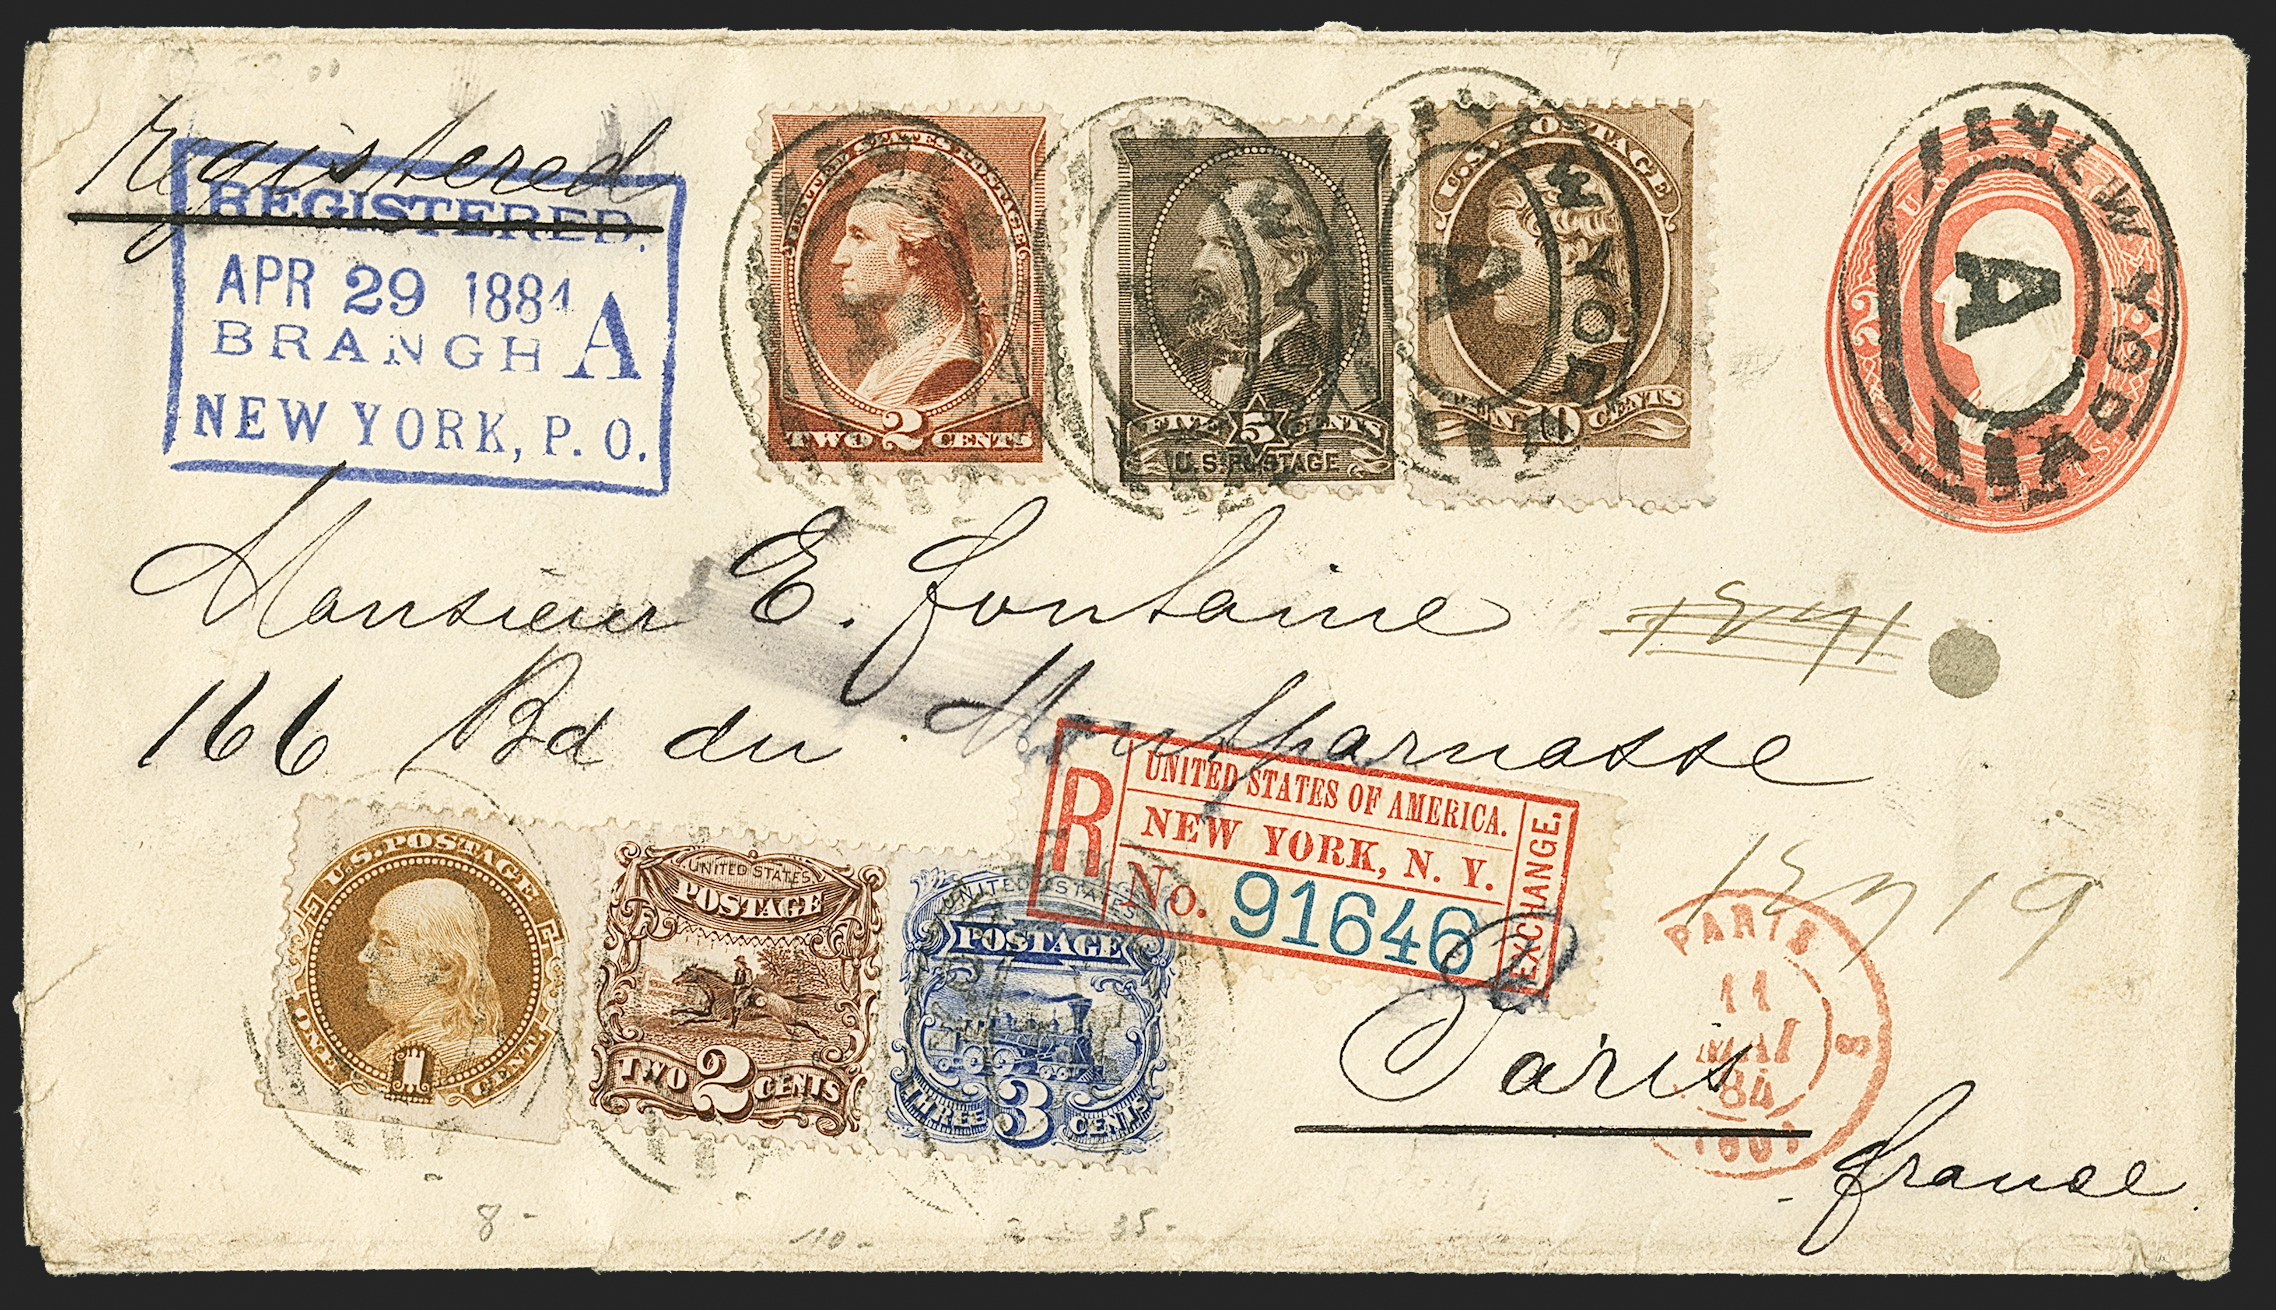 Registered
REGISTERED.
APR 29 1884
BRANCH A
NEW YORK, P. O.
UNITED STATES POSTAGE
TWO 2 CENTS
FIVE 5 CENTS
U.S. POSTAGE
U.S. POSTAGE
TEN 10 CENTS
A
NEW YORK
U.S. POSTAGE
2
TWO CENTS
A
Monsieur E. Fontaine
166 Bd du Montparnasse
R
UNITED STATES OF AMERICA.
NEW YORK, N. Y.
No. 91646
EXCHANGE.
U.S. POSTAGE
ONE 1 CENT
UNITED STATES
POSTAGE
TWO 2 CENTS
UNITED STATES
POSTAGE
THREE 3 CENTS
PARIS
11
MAI
84
Paris
France
8 -
35 -